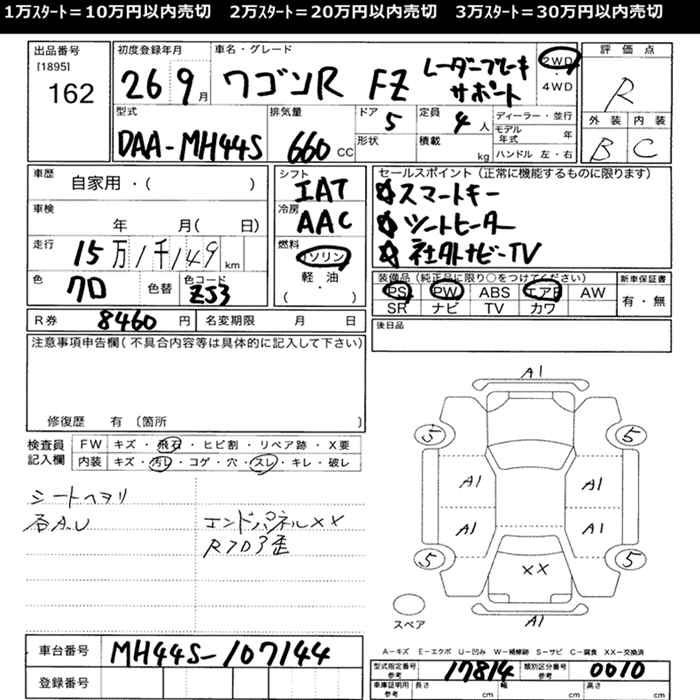 1万ｽﾀｰﾄ＝10万円以内売切　2万ｽﾀｰﾄ＝20万円以内売切　3万ｽﾀｰﾄ＝30万円以内売切
出品番号
[1895]
162
初度登録年月
26 9月
車名・グレード
ワゴンR FZ レーダーブレーキ
サポート
2WD
・
4WD
評価点
R
外装 内装
B C
型式
DAA-MH44S
排気量
660 CC
ドア
5
形状
定員
4 人
積載
kg
ディーラー・並行
モデル年式 年
ハンドル 左・右
車歴
自家用・( )
車検
年 月( 日)
走行
15万1千149 km
色
クロ
色替
色コード
ZJ3
シフト
IAT
冷房
AAC
燃料
ガソリン
軽・油
( ・ )
セールスポイント（正常に機能するものに限ります）
スマートキー
シートヒーター
社外ナビ-TV
装備品（純正品に限り○をつけてください）
PS PW ABS エアB AW
SR ナビ TV カワ
新車保証書
有・無
R券 8460 円
名変期限 月 日
後日品
注意事項申告欄(不具合内容等は具体的に記入して下さい)
修復歴 有 〔箇所 〕
検査員
記入欄
FW キズ・飛石・ヒビ割・リペア跡・X要
内装 キズ・汚レ・コゲ・穴・スレ・キレ・破レ
シートヘタリ
各A.U
エンドパネルXX
Rフロア歪
A1
5 5
A1 A1
A1 A1
5 5
XX
A1
スペア
A－キズ E－エクボ U－凹み W－補修跡 S－サビ C－腐食 XX－交換済
車台番号
MH44S-107144
登録番号
型式指定番号
参考
17814
類別区分番号
参考
0010
車庫証明用
参考
長さ cm
幅 cm
高さ cm